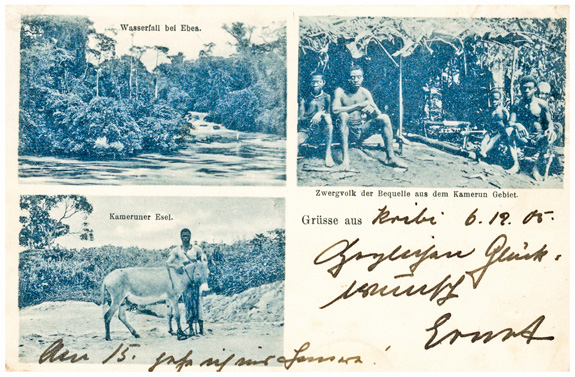 Wasserfall bei Ebea.
Zwergvolk der Bequelle aus dem Kamerun Gebiet.
Kameruner Esel.
Grüsse aus Kribi 6.12.05.
Herzlichen Glück-
wunsch
Ernst
Am 15. gehe ich ins